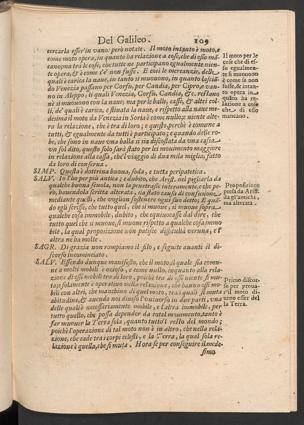 Del Galileo. 109
cercarla esser'in vano: però notate. Il moto intanto è moto, e
come moto opera, in quanto ha relazione a cose, che di esso mancano
ma tra le cose, che tutte ne participano egualmente niente
opera, & è come s'e' non fusse. E così le mercanzie, delle
quali è carica la nave, in tanto si muovono, in quanto lasciando
Venezia passano per Corfù, per Candia, per Cipro, e vanno
in Aleppo, li quali Venezia, Corfù, Candia, &c. restano,
nè si muovono con la nave; ma per le balle, casse, & altri colli,
de' quali è carica, e stivata la nave, e rispetto alla nave medesima
il moto da Venezia in Soria è come nullo, e niente altera
la relazione, che è tra di loro; e questo, perchè è comune a
tutti, & egualmente da tutti è participato; e quando delle robe,
che sono in nave una balla si sia discostata da una cassa
un sol dito, questo solo sarà stato per lei movimento maggiore
in relazione alla cassa, che 'l viaggio di dua mila miglia, fatto
da loro di conserva.
SIMP. Questa è dottrina buona, soda, e tutta peripatetica.
SALV. Io l'ho per più antica; e dubito, che Arist. nel pigliarla da
qualche buona scuola, non la penetrasse interamente, e che però,
havendola scritta alterata, sia stato causa di confusione,
mediante quelli, che voglion sostenere ogni suo detto; E quando
egli scrisse, che tutto quel, che si muove, si muove sopra
qualche cosa immobile, dubito, che equivocasse dal dire, che
tutto quel che si muove, si muove rispetto a qualche cosa immobile,
la qual proposizione non patisce difficultà veruna, e l'
altra ne ha molte.
SAGR. Di grazia non rompiamo il filo, e seguite avanti il discorso
incominciato.
SALV. Essendo dunque manifesto, che il moto, il quale sia comune
a molti mobili è ozioso, e come nullo, in quanto alla relazione
di essi mobili tra di loro, poichè tra di essi niente si muta,
e solamente è operativo nella relazione, che hanno essi mobili
con altri, che manchino di quel moto, tra i quali si muta
habitudine, & avendo noi diviso l'universo in due parti, una
delle quali è necessariamente mobile, e l'altra immobile, per
tutto quello, che possa depender da cotal movimento, tanto è
far muover la Terra sola, quanto tutto 'l resto del mondo;
poichè l'operazione di tal moto non è in altro, che nella relazione,
che cade tra i corpi celesti, e la Terra, la qual sola relazione
è quella, che si muta. Hora se per conseguire il medesimo
Il moto per le
cose che di esso
egualmente
si muovono
è come se non
fusse, & intanto
opera in
quanto ha relazione
a cose
che di esso
mancano.
Proposizione
presa da Arist.
da gl'antichi,
ma alterata.
Primo discorso
per provar
il moto diurno
esser della
Terra.